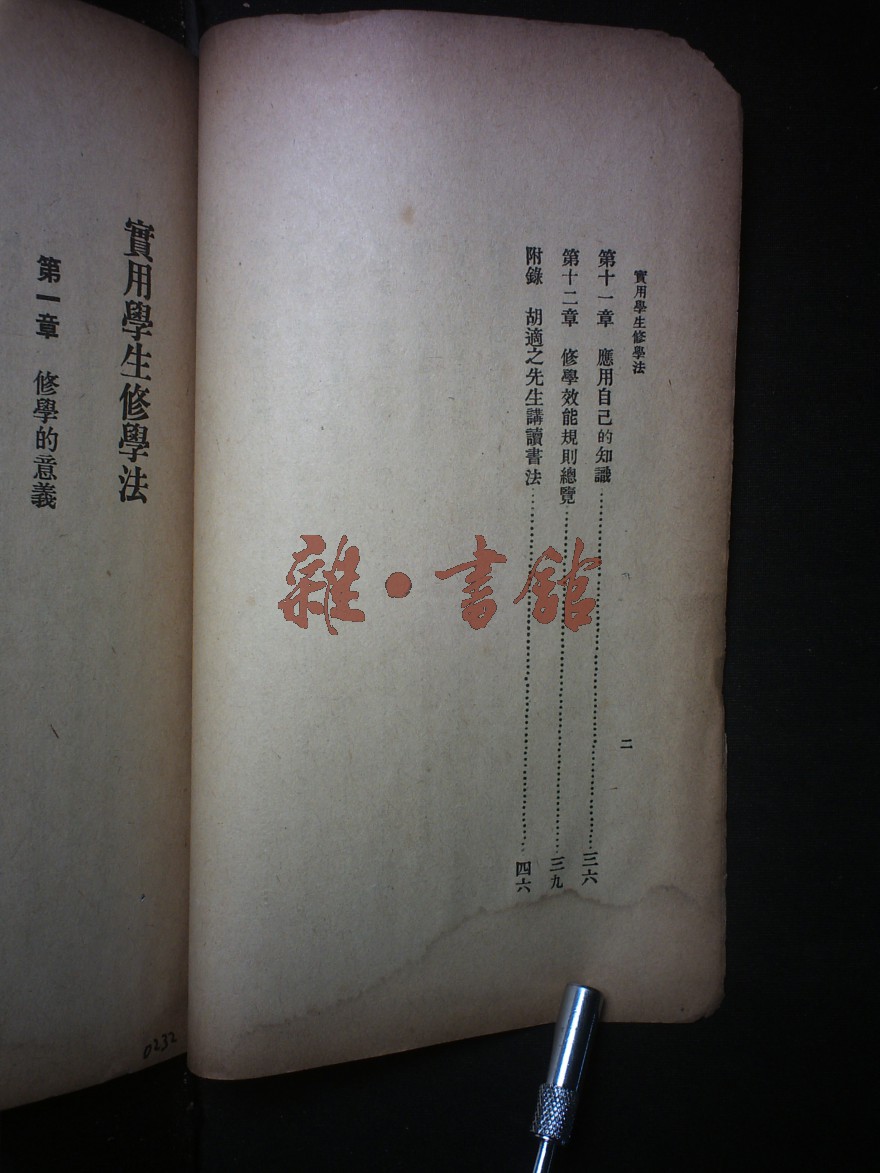 實用學生修學法
二
第十一章　應用自己的知識……三六
第十二章　修學效能規則總覽……三九
附錄　胡適之先生講讀書法……四六
實用學生修學法
第一章　修學的意義
0232
雜·書館